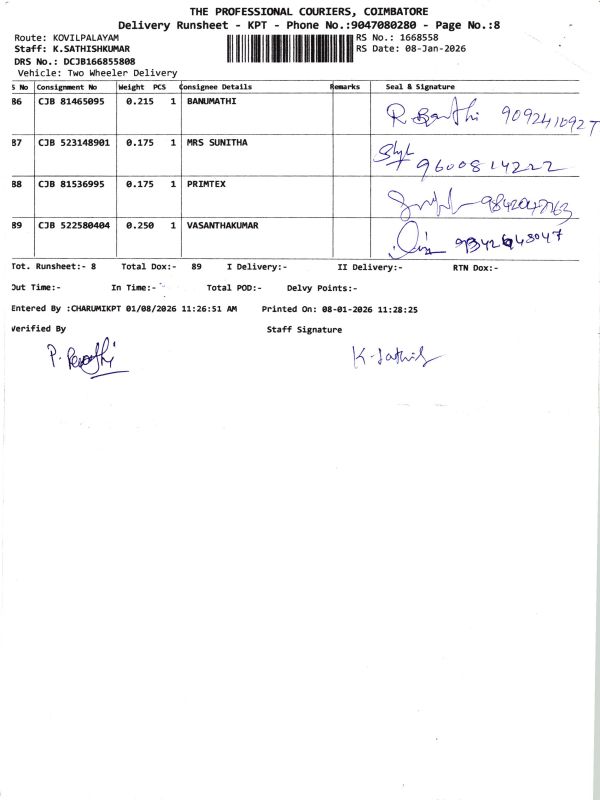 THE PROFESSIONAL COURIERS, COIMBATORE
Delivery Runsheet - KPT - Phone No.:9047080280 - Page No.:8
Route: KOVILPALAYAM RS No.: 1668558
Staff: K.SATHISHKUMAR RS Date: 08-Jan-2026
DRS No.: DCJB166855808
Vehicle: Two Wheeler Delivery
S No Consignment No Weight PCS Consignee Details Remarks Seal & Signature
86 CJB 81465095 0.215 1 BANUMATHI 9092410927
87 CJB 523148901 0.175 1 MRS SUNITHA 9600814222
88 CJB 81536995 0.175 1 PRIMTEX
89 CJB 522580404 0.250 1 VASANTHAKUMAR
Tot. Runsheet:- 8 Total Dox:- 89 I Delivery:- II Delivery:- RTN Dox:-
Out Time:- In Time:- Total POD:- Delvy Points:-
Entered By :CHARUMIKPT 01/08/2026 11:26:51 AM Printed On: 08-01-2026 11:28:25
Verified By Staff Signature
K-Sathish